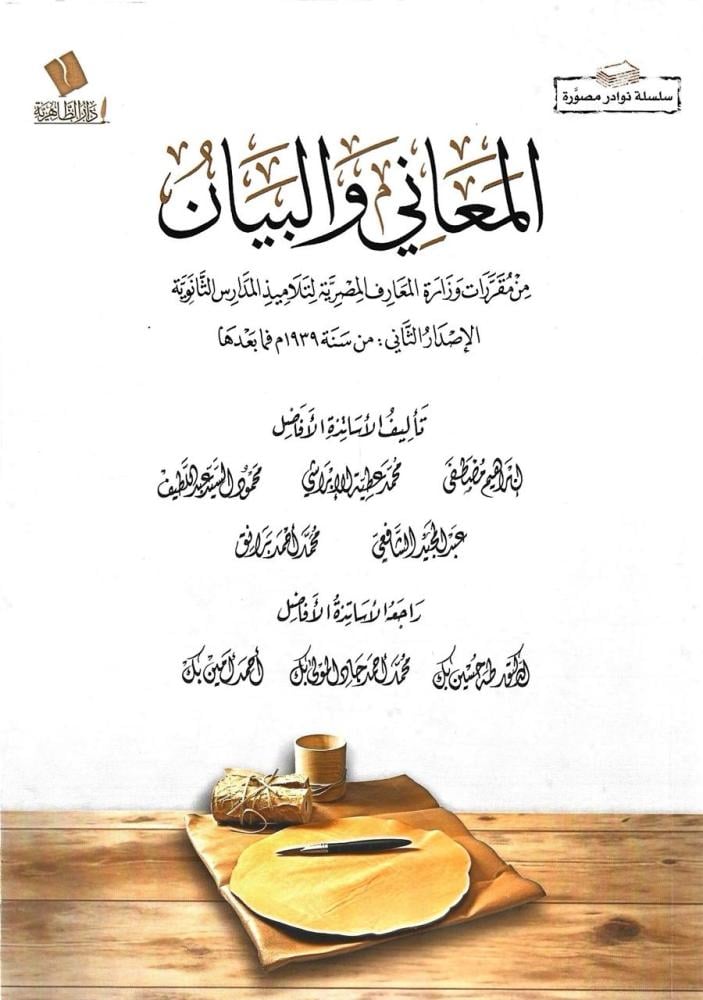 سلسلة نوادر مصوَّرة
دار الظاهرية
المَعَانِي وَالبَيَانُ
مِنْ مُقَرَّرَاتِ وَزَارَةِ المَعَارِفِ المِصْرِيَّةِ لِتَلَامِيذِ المَدَارِسِ الثَّانَوِيَّة
الإِصْدَارُ الثَّانِي: مِن سَنَة ١٩٣٩م فَمَا بَعْدَهَا
تَأْلِيفُ الأَسَاتِذَةِ الأَفَاضِل
إِبْرَاهِيم مُصْطَفَى مُحَمَّد عَطِيَّة الإِبْرَاشِي مَحْمُود السَّيِّد عَبْد اللَّطِيف
عَبْد المَجِيد الشَّافِعِي مُحَمَّد أَحْمَد بَرَانِق
رَاجَعَهُ الأَسَاتِذَةُ الأَفَاضِل
الدّكتور طه حُسَيْن بك مُحَمَّد أَحْمَد جَاد المَوْلَى بك أَحْمَد أَمِين بك